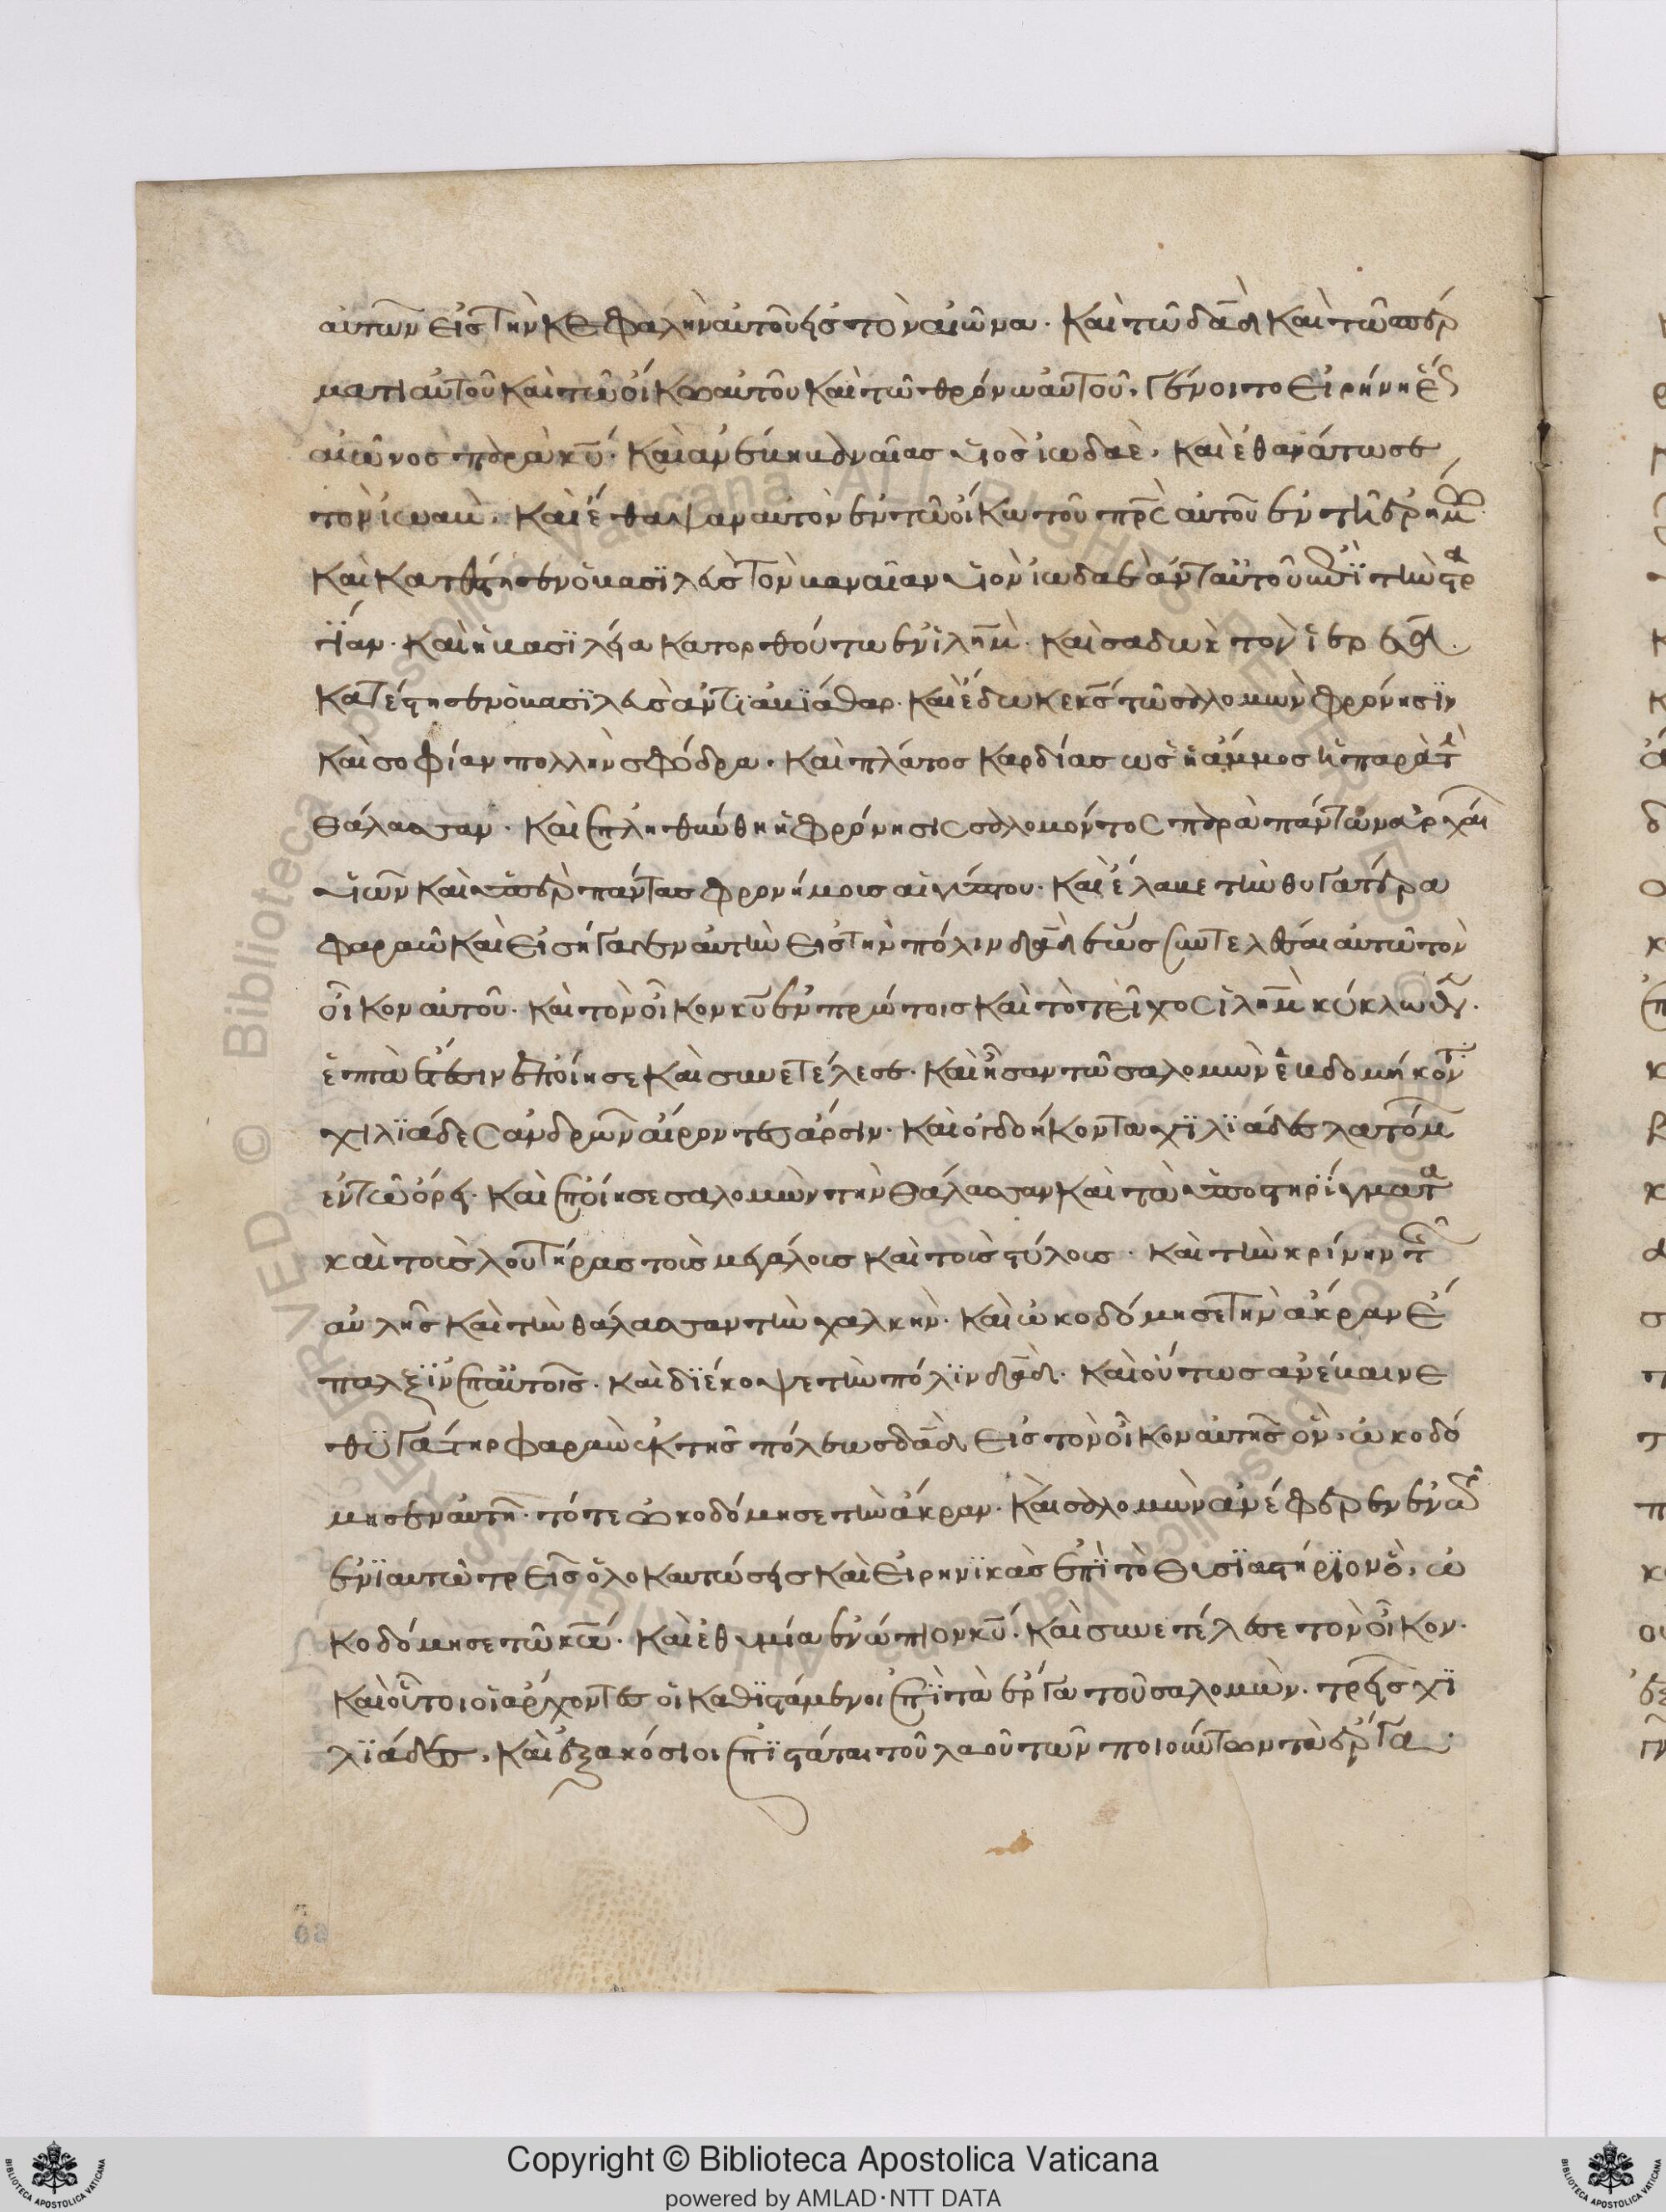 αὐτῶν εἰς τὴν κεφαλὴν αὐτοῦ εἰς τὸν αἰῶνα. καὶ τῶ δαδ καὶ τῶ σπέρ
ματι αὐτοῦ καὶ τῶ οἴκω αὐτοῦ καὶ τῶ θρόνω αὐτοῦ, γένοιτο εἰρήνη ἕως
αἰῶνος παρὰ κυ. καὶ ἀνέβη βαναίας υἱὸς ἰωδαὲ, καὶ ἐθανάτωσε
τὸν ἰωαβ. καὶ ἔθαψαν αὐτὸν ἐν τῶ οἴκω τοῦ πρς αὐτοῦ ἐν τῆ ἐρήμ
καὶ κατέστησεν ὁ βασϊλεὺς τὸν βαναίαν υἱὸν ἰωδαὲ ἀντ αὐτοῦ ἐπὶ τὴν στρα
τϊάν. καὶ ἡ βασϊλεία κατορθοῦτω ἐν ἱλημ. καὶ σαδωκ τὸν ἱερέα
κατέστησεν ὁ βασϊλεὺς ἀντὶ ἀβϊάθαρ. καὶ ἔδωκε κς τῶ σολομὼν φρόνησϊν
καὶ σοφίαν πολλὴν σφόδρα. καὶ πλάτος καρδίας ὡς ἡ ἄμμος ἡ παρὰ τὴν
θάλασσαν. καὶ ἐπληθύνθη ἡ φρόνησις σολομόντος παρὰ πάντων ἀρχαί
υἱῶν καὶ ὑπὲρ πάντας φρονήμους αἰγύπτου. καὶ ἔλαβε τὴν θυγατέρα
φαραὼ καὶ εἰσήγαγεν αὐτὴν εἰς τὴν πόλιν δαδ ἕως συντελέσαι αὐτῶ τὸν
οἶκον αὐτοῦ. καὶ τὸν οἶκον κυ ἐν πρώτοις καὶ τὸ τεῖχος ἱλημ κύκλωθεν.
ἑπτὰ ἔτεσιν ἐποίησε καὶ συνετέλεσε. καὶ ἦσαν τῶ σαλομὼν ἑβδομήκοντ
χιλϊάδες ἀνδρῶν αἴροντες ἄρσιν. καὶ ὀγδοήκοντα χϊλϊάδες λατόμ
ἐν τῶ ὄρει. καὶ ἐποίησε σαλομὼν τὴν θάλασσαν καὶ τὰ ὑποστηρίγματα
καὶ τοὺς λουτήρας τοὺς μεγάλους καὶ τοὺς στύλους. καὶ τὴν κρίνην τῆς
αὐλῆς καὶ τὴν θάλασσαν τὴν χαλκὴν. καὶ ὠκοδόμησε τὴν ἄκραν ἔ
παλξϊν ἐπαὐτοῖς. καὶ δϊέκοψε τὴν πόλϊν δαδ. καὶ οὕτως ἀνέβαινε
θϋγάτηρ φαραὼ ἐκ τῆς πόλεως δαδ εἰς τὸν οἶκον αὐτῆς ὃν, ὠκοδό
μησεν αὐτῆ. τότε ὠκοδόμησε τὴν ἄκραν. καὶ σολομὼν ἀνέφερεν ἐν τῶ
ἐνϊαυτῶ τρεῖς ὁλοκαυτώσεις καὶ εἰρηνϊκὰς ἐπὶ τὸ θυσϊαστήρϊον ὃ, ὠ
κοδόμησε τῶ κω. καὶ ἐθυμία ἐνώπιον κυ. καὶ συνετέλεσε τὸν οἶκον.
καὶ οὗτοι οἱ ἄρχοντες οἱ καθϊστάμενοι ἐπὶ τὰ ἔργα τοῦ σαλομὼν. τρεῖς χϊ
λϊάδες, καὶ ἑξακόσιοι ἐπϊστάται τοῦ λαοῦ τῶν ποιούντων τὰ ἔργα.
Copyright © Biblioteca Apostolica Vaticana
powered by AMLAD·NTT DATA